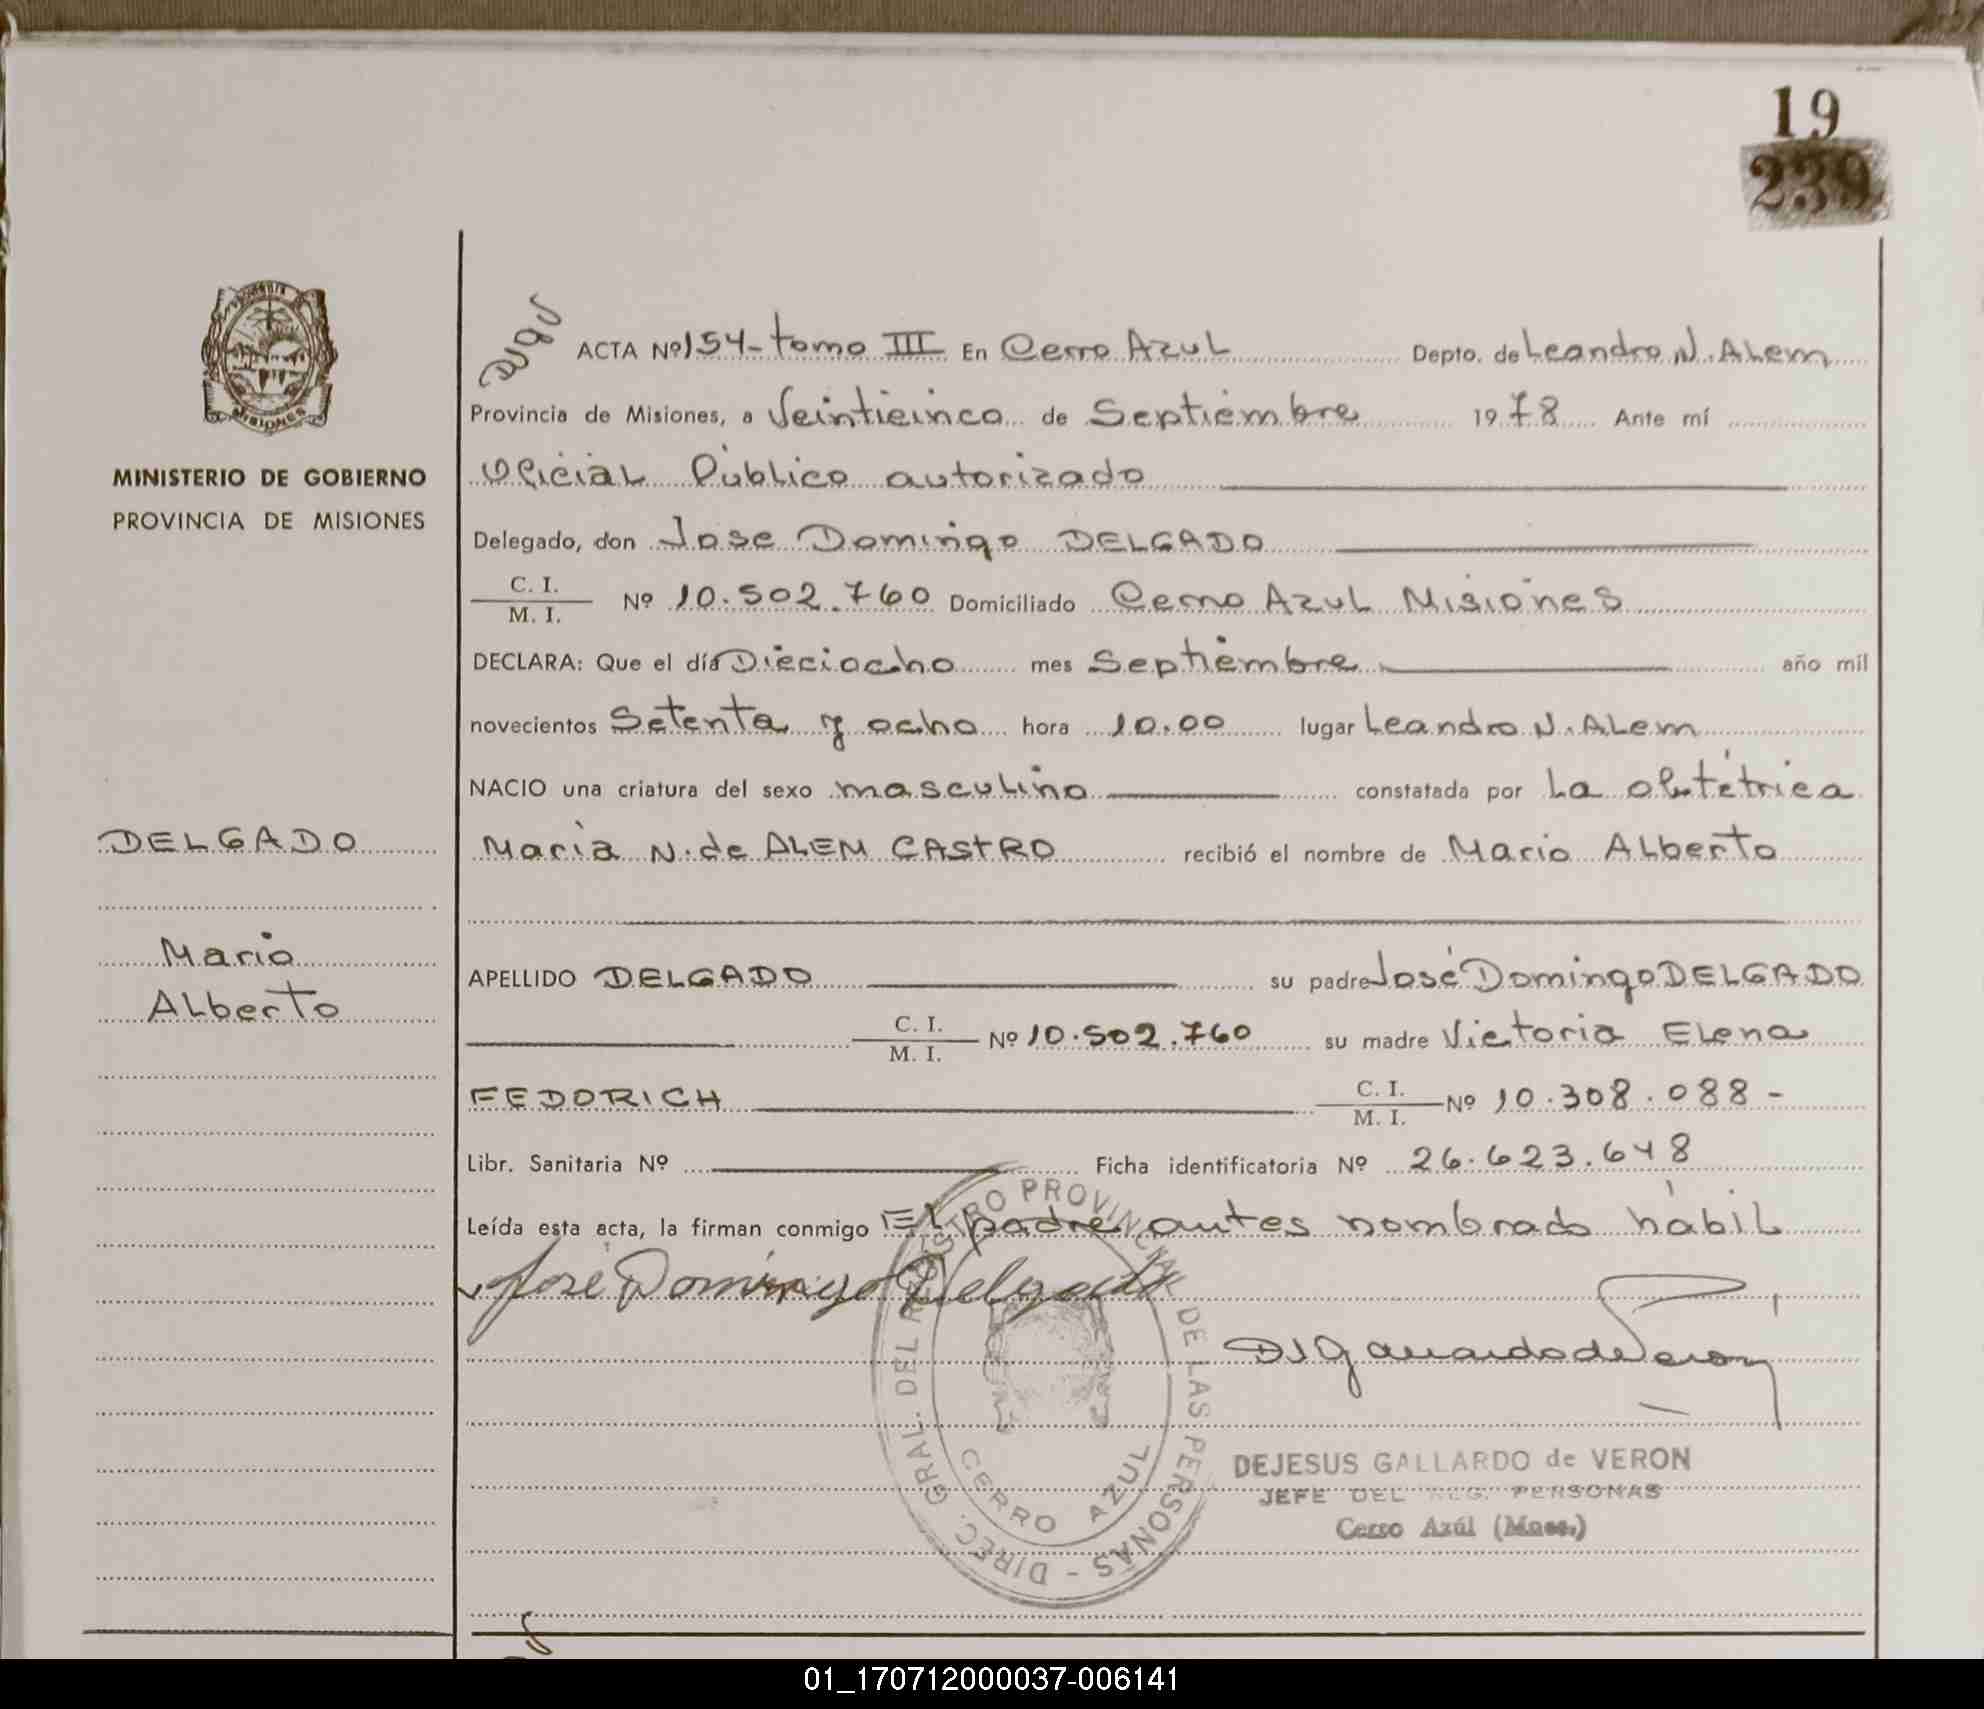 19
239
MISIONES
MINISTERIO DE GOBIERNO
PROVINCIA DE MISIONES
DELGADO
Mario
Alberto
ACTA Nº 154 - tomo III En Cerro Azul Depto. de Leandro N. Alem
Provincia de Misiones, a Veinticinco de Septiembre 1978 Ante mí
Oficial Público autorizado
Delegado, don Jose Domingo DELGADO
C. I.
M. I. Nº 10.502.760 Domiciliado Cerro Azul Misiones
DECLARA: Que el día Dieciocho mes Septiembre año mil
novecientos Setenta y ocho hora 10.00 lugar Leandro N. Alem
NACIO una criatura del sexo masculino constatada por La obtétrica
Maria N. de ALEM CASTRO recibió el nombre de Mario Alberto
APELLIDO DELGADO su padre José Domingo DELGADO
C. I.
M. I. Nº 10.502.760 su madre Victoria Elena
FEDORICH C. I.
M. I. Nº 10.308.088 -
Libr. Sanitaria Nº Ficha identificatoria Nº 26.623.648
Leída esta acta, la firman conmigo El padre antes nombrado hábil
José Domingo Delgado
DJGallardo de Veron
DIREC. GRAL. DEL REGISTRO PROVINCIAL DE LAS PERSONAS -
CERRO AZUL
DEJESUS GALLARDO de VERON
JEFE DEL REG. PERSONAS
Cerro Azúl (Mnes.)
01_170712000037-006141